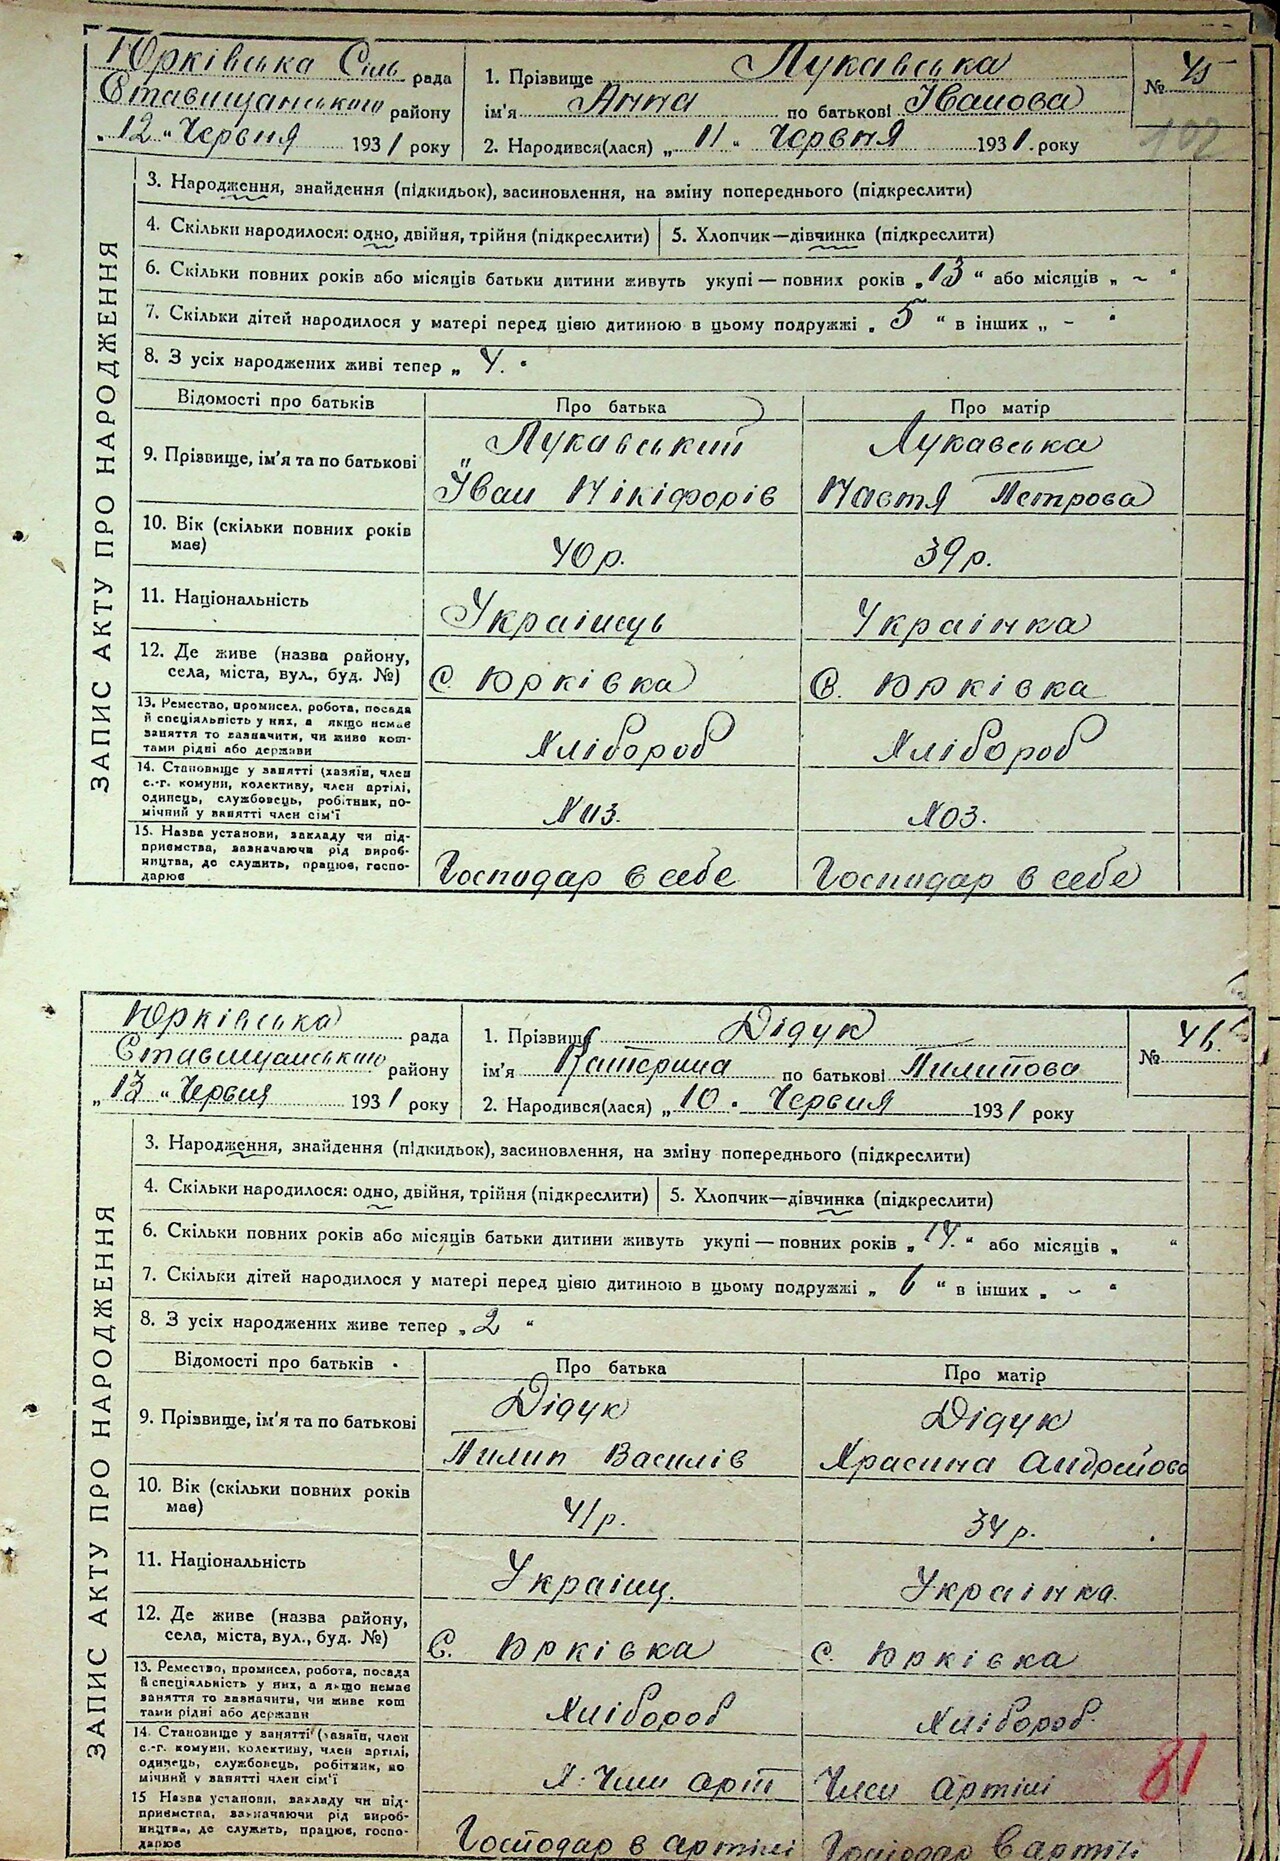 Юрківська Сіль рада
Ставищанського району
„12“ Червня 1931 року
1. Прізвище Лукавська
ім'я Анна по батькові Іванова
2. Народився(лася) „11“ Червня 1931 року
№ 45
102
ЗАПИС АКТУ ПРО НАРОДЖЕННЯ
3. Народження, знайдення (підкидьок), засиновлення, на зміну попереднього (підкреслити)
4. Скільки народилося: одно, двійня, трійня (підкреслити) 5. Хлопчик—дівчинка (підкреслити)
6. Скільки повних років або місяців батьки дитини живуть укупі — повних років „13“ або місяців „ – “
7. Скільки дітей народилося у матері перед цією дитиною в цьому подружжі „5“ в інших „ – “
8. З усіх народжених живі тепер „4.“
Відомості про батьків Про батька Про матір
9. Прізвище, ім'я та по батькові
Лукавський Лукавська
Іван Нікіфорів Настя Петрова
10. Вік (скільки повних років має) 40 р. 39 р.
11. Національність Українець Українка
12. Де живе (назва району, села, міста, вул., буд. №) с. Юрківка с. Юрківка
13. Ремество, промисел, робота, посада
й спеціяльність у них, а якщо немає
заняття то зазначити, чи живе кош-
тами рідні або держави
Хлібороб Хлібороб
14. Становище у занятті (хазяїн, член
с.-г. комуни, колективу, член артілі,
одинець, службовець, робітник, по-
мічний у занятті член сім'ї
Хоз. Хоз.
15. Назва установи, закладу чи під-
приємства, зазначаючи рід вироб-
ництва, де служить, працює, госпо-
дарює
Господар в себе Господар в себе
Юрківська рада
Ставищанського району
„13“ Червня 1931 року
1. Прізвище Дідук
ім'я Катерина по батькові Пилипова
2. Народився(лася) „10“ Червня 1931 року
№ 46
ЗАПИС АКТУ ПРО НАРОДЖЕННЯ
3. Народження, знайдення (підкидьок), засиновлення, на зміну попереднього (підкреслити)
4. Скільки народилося: одно, двійня, трійня (підкреслити) 5. Хлопчик—дівчинка (підкреслити)
6. Скільки повних років або місяців батьки дитини живуть укупі — повних років „14.“ або місяців „ “
7. Скільки дітей народилося у матері перед цією дитиною в цьому подружжі „6“ в інших „ – “
8. З усіх народжених живе тепер „2“
Відомості про батьків Про батька Про матір
9. Прізвище, ім'я та по батькові
Дідук Дідук
Пилип Василів Храсина Андрейова
10. Вік (скільки повних років має) 41 р. 34 р.
11. Національність Україн. Українка
12. Де живе (назва району, села, міста, вул., буд. №) с. Юрківка с. Юрківка
13. Ремество, промисел, робота, посада
й спеціяльність у них, а якщо немає
заняття то зазначити, чи живе кош
тами рідні або держави
Хлібороб Хлібороб
14. Становище у занятті (хазяїн, член
с.-г. комуни, колективу, член артілі,
одинець, службовець, робітник, по
мічний у занятті член сім'ї
Член арт Член артілі
81
15 Назва установи, закладу чи під-
приємства, зазначаючи рід вироб-
ництва, де служить, працює, госпо-
дарює
Господар в артілі Господар в артілі